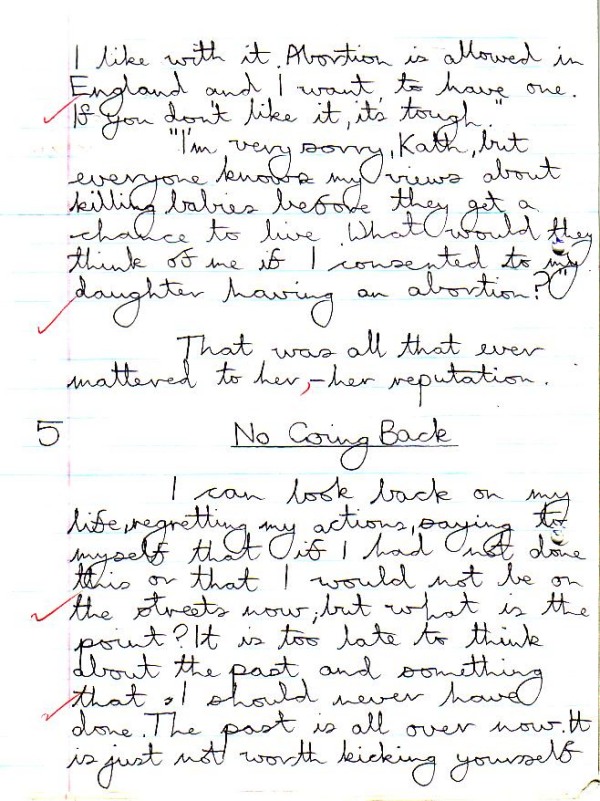 I like with it. Abortion is allowed in
England and I want to have one.
If you don't like it, it's tough."
"I'm very sorry, Kath, but
everyone knows my views about
killing babies before they get a
chance to live. What would they
think of me if I consented to my
daughter having an abortion?"
That was all that ever
mattered to her,-her reputation.
5 No Going Back
I can look back on my
life, regretting my actions, saying to
myself that if I had not done
this or that I would not be on
the streets now, but what is the
point? It is too late to think
about the past and something
that I should never have
done. The past is all over now. It
is just not worth kicking yourself